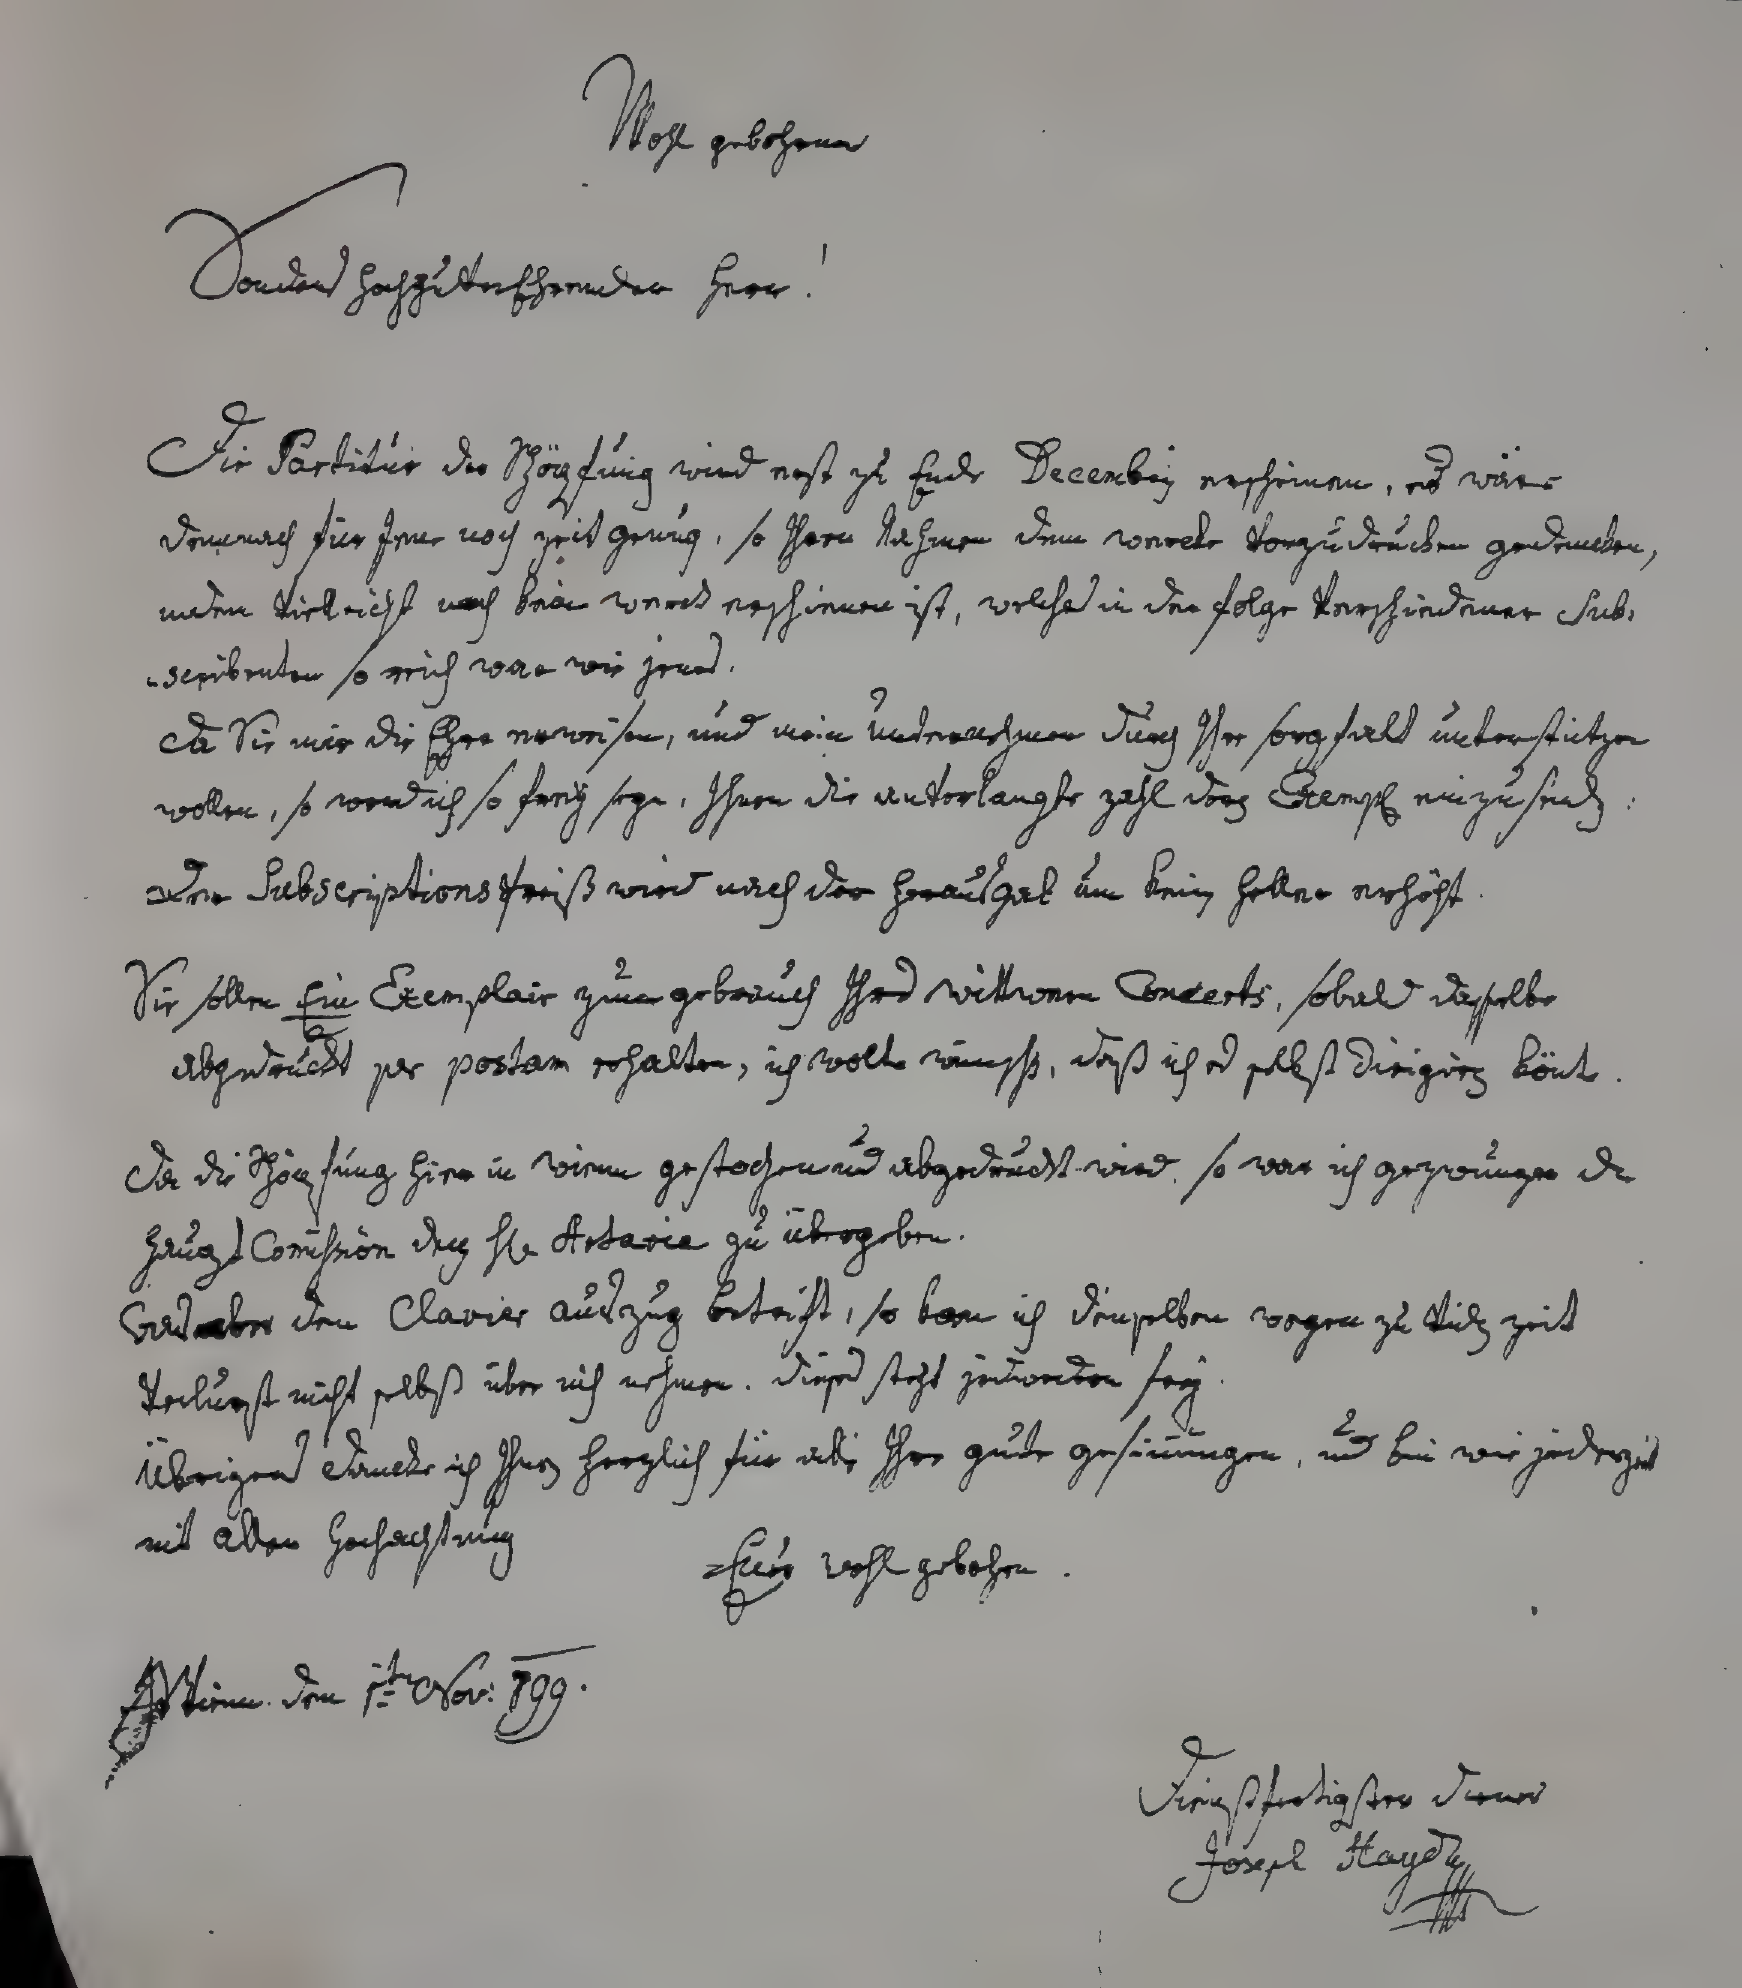 Wohl gebohrner
Sonders HochzuverEhrender Herr!
Die Partitur der Schöpfung wird erst zu Ende Decembris erscheinen, es wäre
demnach für jene noch zeit genug, so Ihren Nahmen dem wercke vorzudrucken gedencken,
indem vielleicht noch kein werck erschienen ist, welches in der folge verschiedener Sub-
-scribenten so reich war wie jenes.
da Sie mir die Ehre erweisen, und mein unternehmen durch Ihre sorgfalt unterstützen
wollen, so werd ich so frey seyn, Ihnen die anverlangte zahl der Exempl einzusenden:
der Subscriptions Preiß wird nach der Herausgab um kein Heller erhöht.
Sie sollen Ein Exemplair zum gebrauch Ihres wittwen Concerts, sobald dasselbe
abgedruckt per postam erhalten, ich wolte wünschen, daß ich es selbst dirigiren könte.
da die Schöpfung hier in wienn gestochen und abgedruckt wird, so war ich gezwungen die
Haupt Comission den H. Artaria zu übergeben.
Was aber den Clavier auszug betrift, so kan ich denselben wegen zu viel zeit
Verlurst nicht selbst über mich nehmen. dieses steht jedweden frey.
Übrigens dancke ich Ihnen herzlich für alle Ihre gute gesinnungen, und bin wie jederzeit
mit aller Hochachtung
Euer wohl gebohren.
Wienn den 1ten Nov: 799.
Dienstfertigster diener
Joseph Haydn